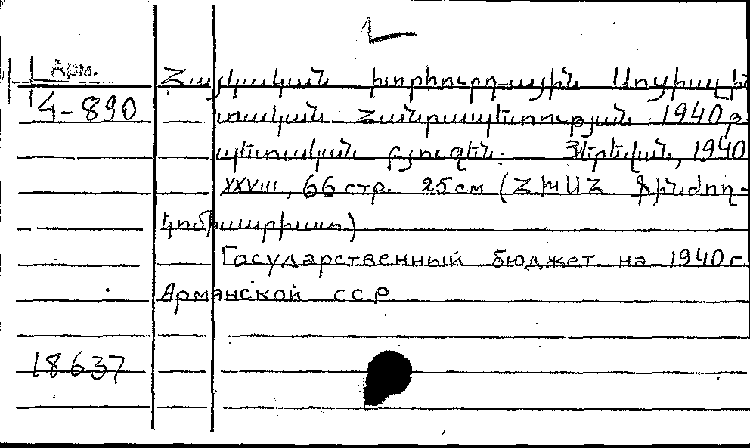 Арм.
4-890
Հայկական խորհրդային Սոցիալիս
տական Հանրապետության 1940 թ.
պետական բյուջեն. Յերեվան, 1940
XXVIII, 66 стр. 25 см (ՀԽՍՀ Ֆինժող-
կոմիսարիատ)
Государственный бюджет на 1940 г.
Армянской ССР
18637